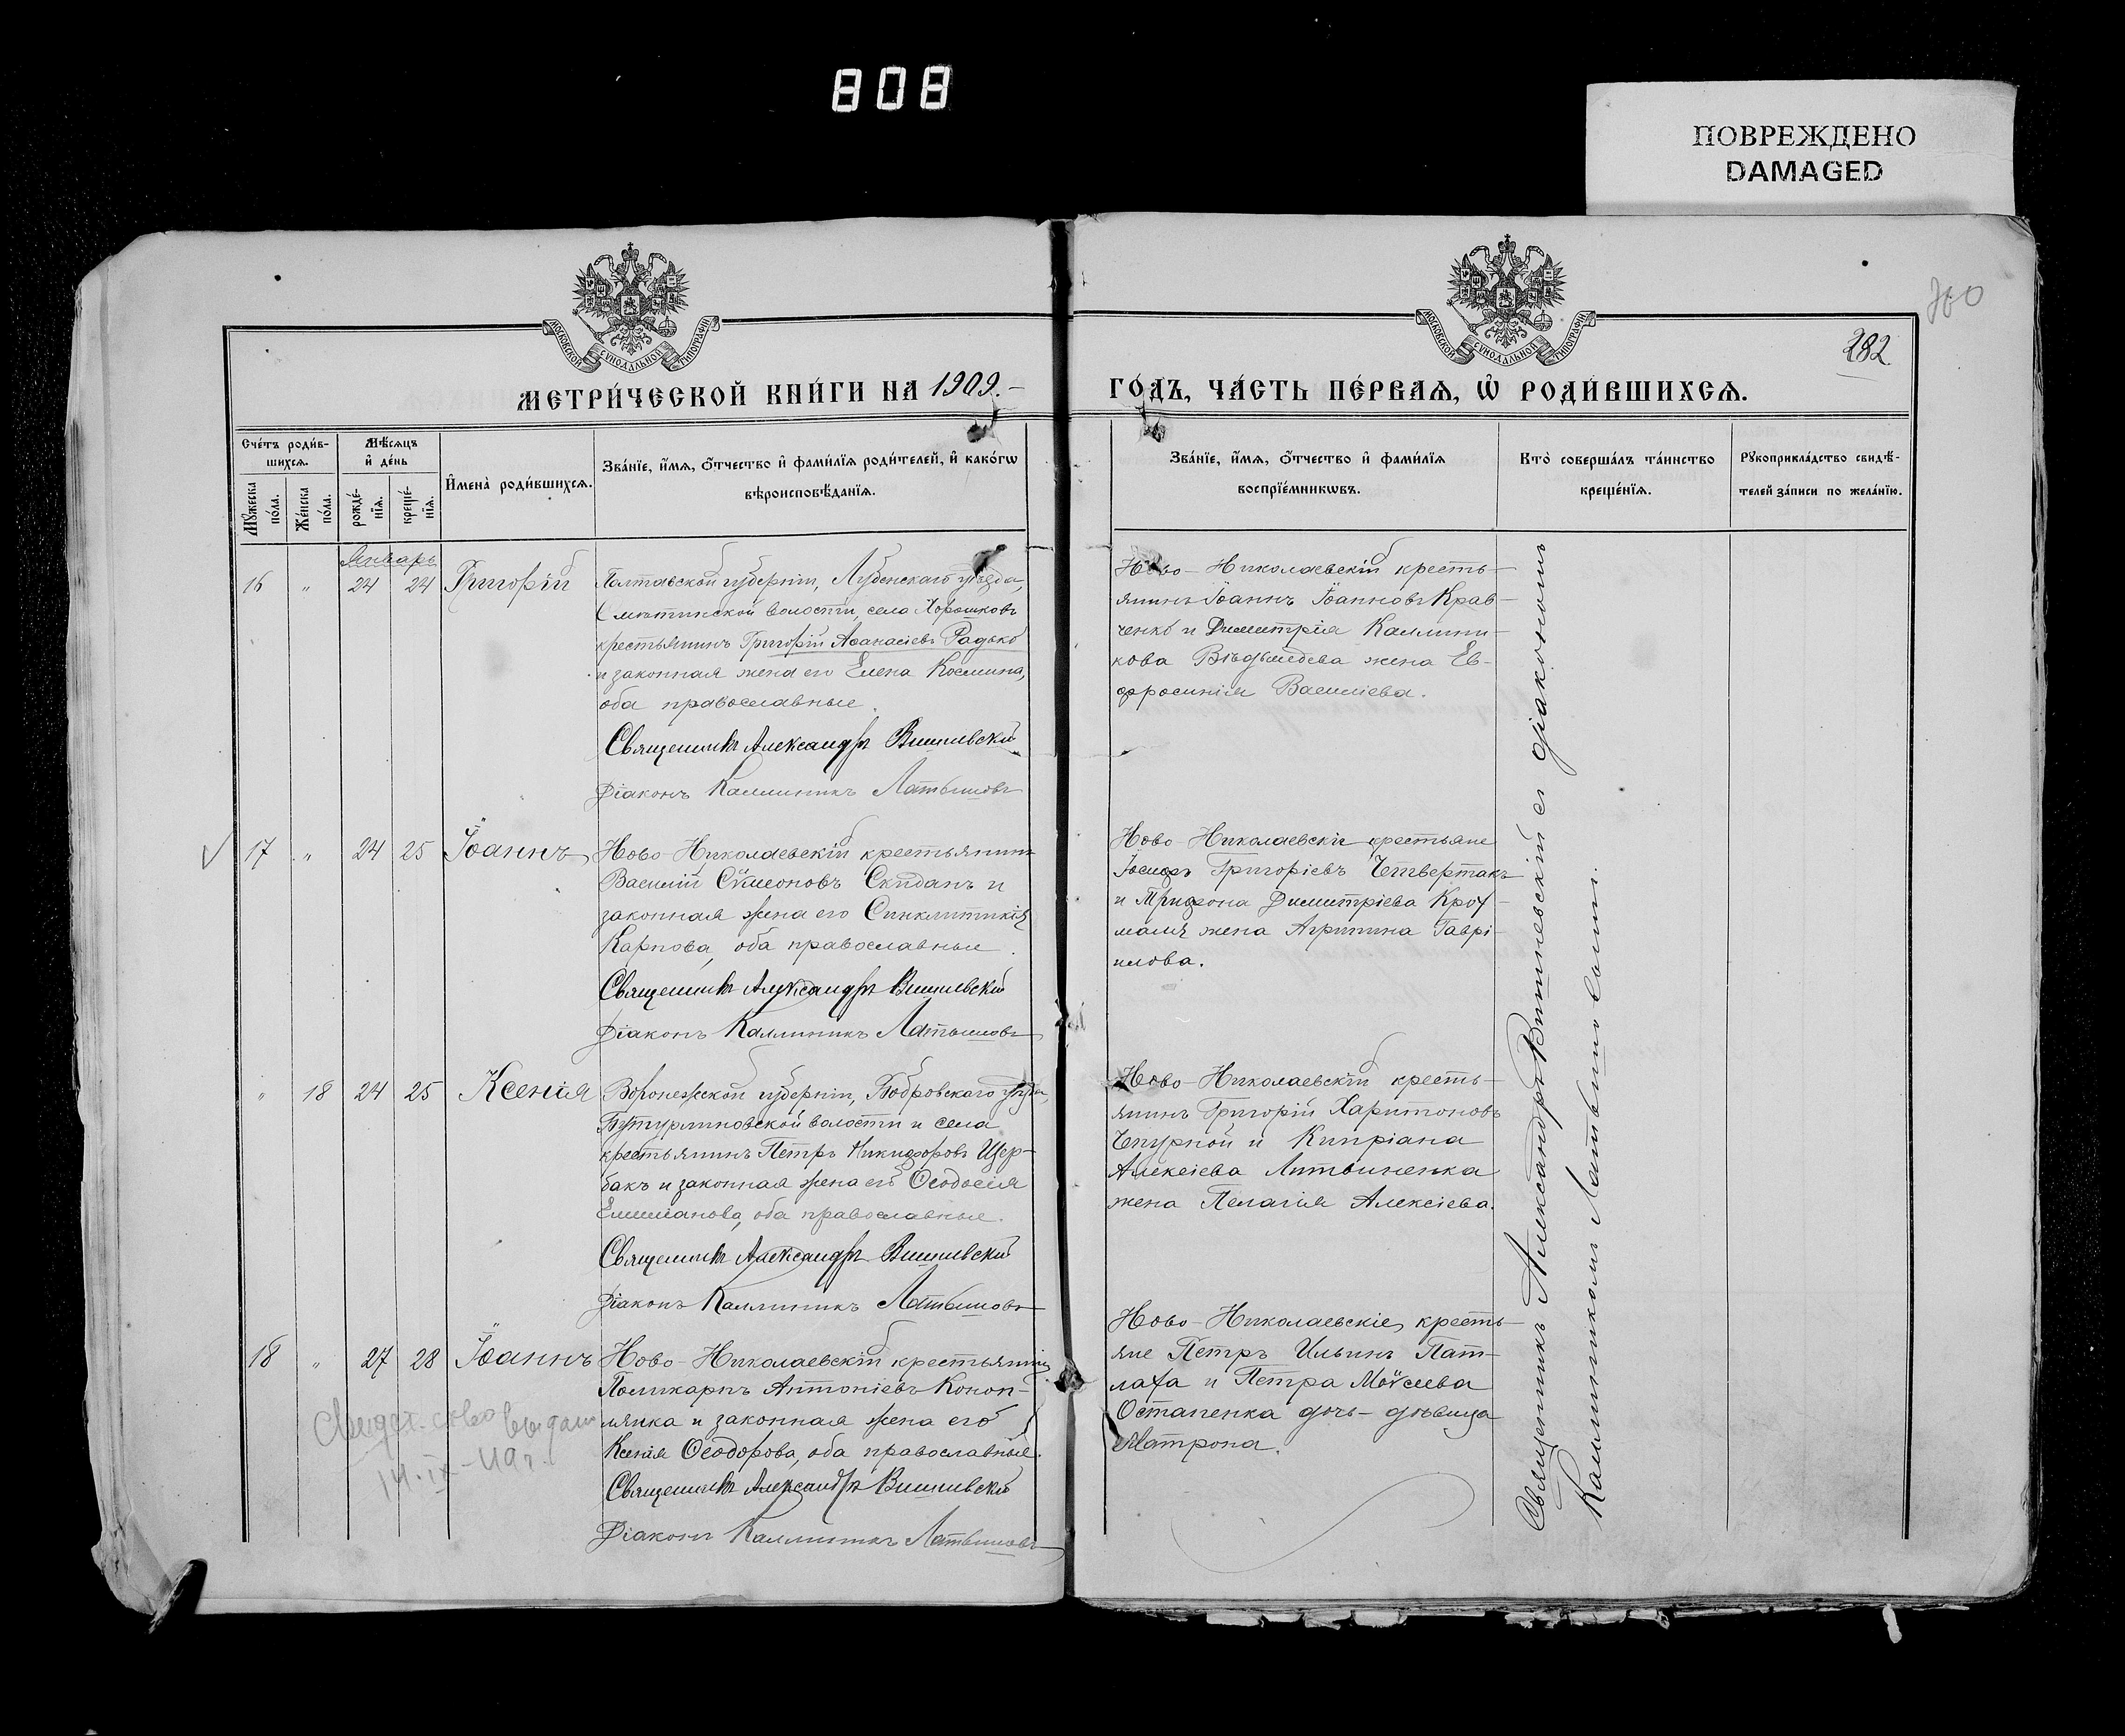 808
ПОВРЕЖДЕНО
DAMAGED
МОСКОВСКОЙ СѴНОДАЛЬНОЙ ТИПОГРАФІИ
МОСКОВСКОЙ СѴНОДАЛЬНОЙ ТИПОГРАФІИ
282
МЕТРИ́ЧЕСКОЙ КНИ́ГИ НА 1909.-
ГО́ДЪ, ЧА́СТЬ ПЕ́РВАѦ, Ѡ҆ РОДИ́ВШИХСѦ.
Сче́тъ роди́в-
шихсѧ.
Мꙋ́жеска по́ла.
Же́нска по́ла.
Мѣ́сѧцъ
и҆ де́нь
рожде́-нїѧ.
креще́-нїѧ.
И҆мена̀ роди́вшихсѧ.
Зва́нїе, и҆́мѧ, ѻ҆́тчество и҆ фами́лїѧ роди́телей, и҆ како́гѡ
вѣроисповѣ́данїѧ.
Зва́нїе, и҆́мѧ, ѻ҆́тчество и҆ фами́лїѧ
воспрїе́мникѡвъ.
Кто̀ соверша́лъ та́инство
креще́нїѧ.
Рꙋкоприкла́дство свидѣ́-
телей за́писи по жела́нїю.
Январь
16 " 24 24 Григорій
Полтавской губерніи, Лубенскаго уѣзда,
волости, села
крестьянинъ Григорій Аѳанасіевъ Радько
и законная жена его Елена Космина,
оба православные.
Священникъ Александръ Вишневскій
Діаконъ Каллиникъ Латышовъ
Ново-Николаевскій кресть-
янинъ Іоаннъ Іоанновъ Крав-
ченко и Димитрія Каллини-
кова жена Ев-
фросинія Василіева.
17 " 24 25 Іоаннъ
Ново-Николаевскій крестьянинъ
Василій Сѷмеоновъ Скиданъ и
законная жена его Синклитикія
Карпова, оба православные.
Священникъ Александръ Вишневскій
Діаконъ Каллиникъ Латышовъ
Ново-Николаевскіе крестьяне
Іосифъ Григоріевъ Четвертакъ
и Трифона Димитріева Кро-
маля жена Агрипина Гаврі-
илова.
" 18 24 25 Ксенія
Воронежской губерніи, Бобровскаго уѣзда,
Бутурлиновской волости и села
крестьянинъ Петръ Никифоровъ Щер-
бакъ и законная жена его Ѳеодосія
Емиліанова, оба православные.
Священникъ Александръ Вишневскій
Діаконъ Каллиникъ Латышовъ
Ново-Николаевскій кресть-
янинъ Григорій Харитоновъ
Чепурной и Кипріана
Алексіева Литвиненка
жена Пелагія Алексіева.
18 " 27 28 Іоаннъ
Ново-Николаевскій крестьянинъ
Поликарпъ Антоніевъ Коноп-
лянка и законная жена его
Ксенія Ѳеодорова, оба православные.
Священникъ Александръ Вишневскій
Діаконъ Каллиникъ Латышовъ
Свидет-ство выдано
14-IX-49г.
Ново-Николаевскіе кресть-
яне Петръ Ильинъ Пат-
лаха и Петра Моѷсеева
Остапенка дочь-дѣвица
Матрона.
Священникъ Александръ Вишневскій съ діакономъ
Каллиникомъ Латышовымъ.